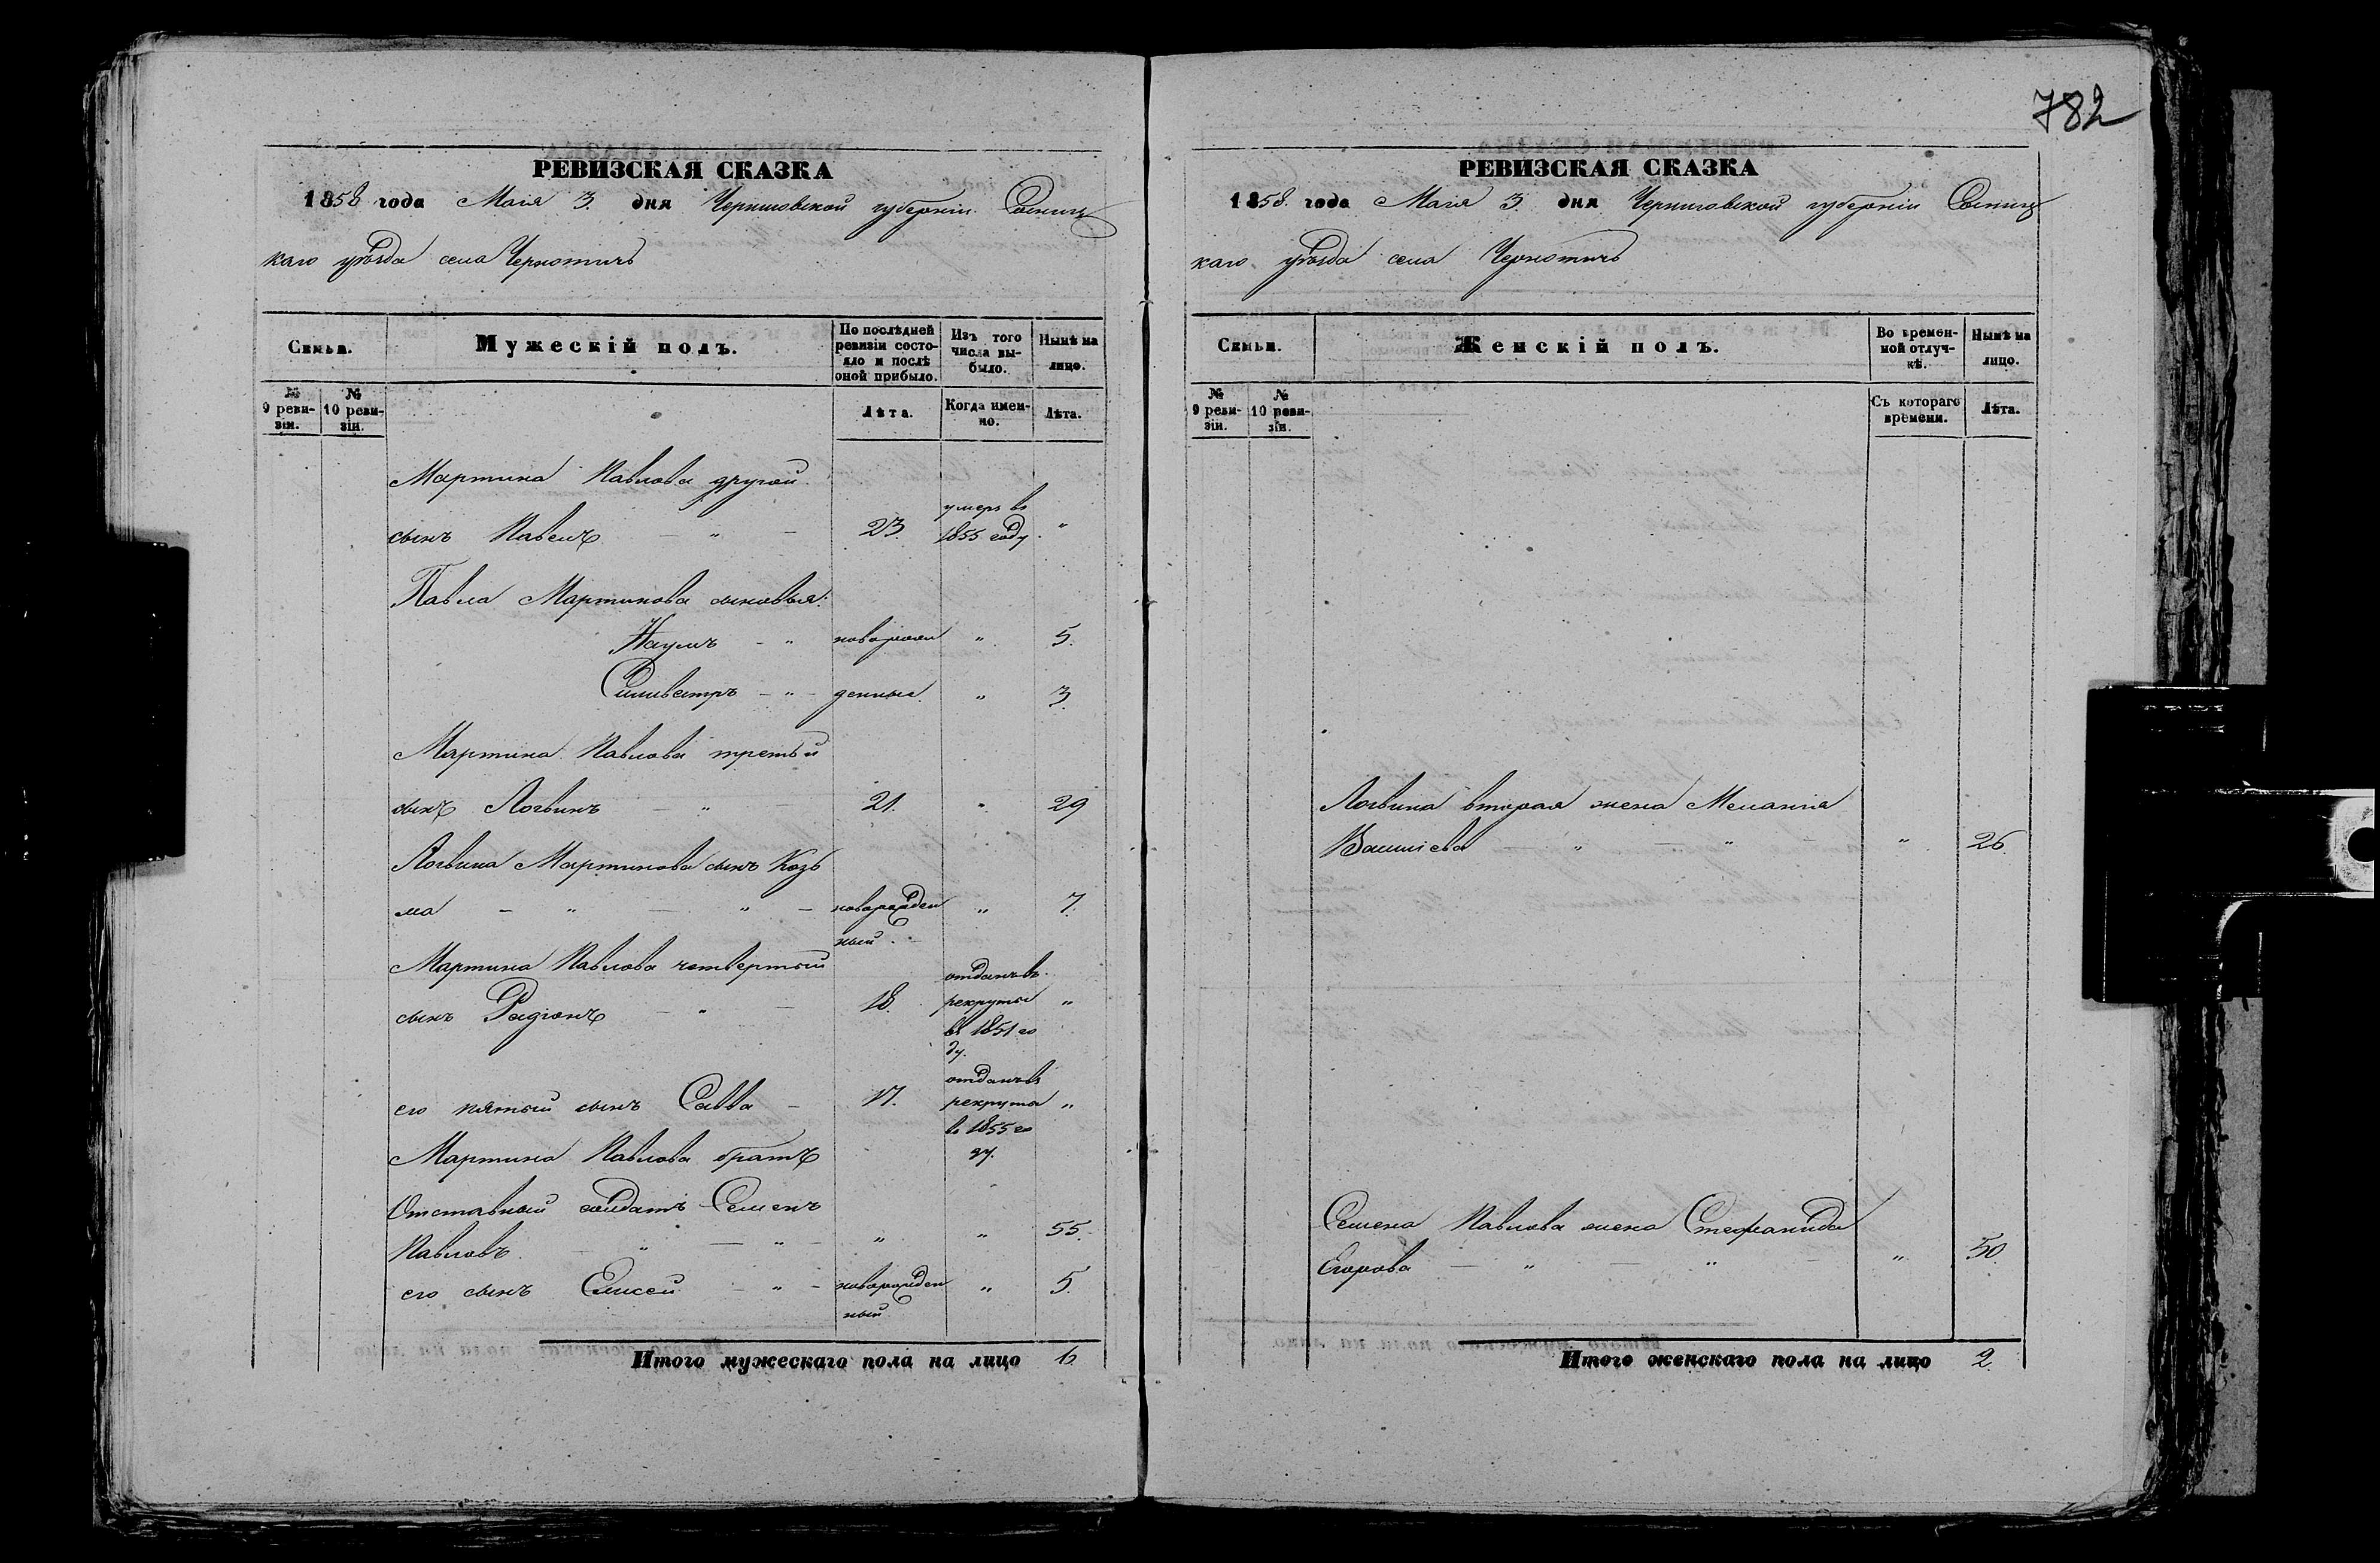 782
РЕВИЗСКАЯ СКАЗКА
1858 года Маія 3. дня Черниговской губерніи Сосниц
каго уѣзда села Чернотичъ
Семьи.
Мужескій полъ.
По послѣдней ревизіи состояло и послѣ оной прибыло.
Изъ того числа выбыло.
Нынѣ на лицо.
№ 9 ревизіи.
№ 10 ревизіи.
Лѣта.
Когда именно.
Лѣта.
Мартина Павлова другой
умеръ въ
сынъ Павелъ — " — 23. 1855 году. "
Павла Мартинова сыновья:
Наумъ - " новорож " 5.
Силивестръ - " - денные. " 3.
Мартина Павлова третьй
сынъ Логвинъ — " — 21. " 29
Логвина Мартинова сынъ Козь
ма — " — " — новорожден " 7.
ный.
Мартина Павлова четвертый
отданъ въ
сынъ Радіонъ — " — 18. рекруты "
въ 1851 го
ду.
отданъ въ
его пятый сынъ Савва — 17. рекруты "
въ 1855 го
Мартина Павлова братъ ду.
Отставный солдатъ Семенъ
Павловъ. — " — " — " " 55.
его сынъ Елисей — " — новорожден " 5.
ный
Итого мужескаго пола на лицо 6.
РЕВИЗСКАЯ СКАЗКА
1858. года Маія 3. дня Черниговской губерніи Сосниц
каго уѣзда села Чернотичъ
Семьи.
Женскій полъ.
Во временной отлучкѣ.
Нынѣ на лицо.
№ 9 ревизіи.
№ 10 ревизіи.
Съ котораго времени.
Лѣта.
Логвина вторая жена Меланія
Василіева — " — " — " 26.
Семена Павлова жена Стефанида
Егорова — " — " — " 50.
Итого женскаго пола на лицо 2.